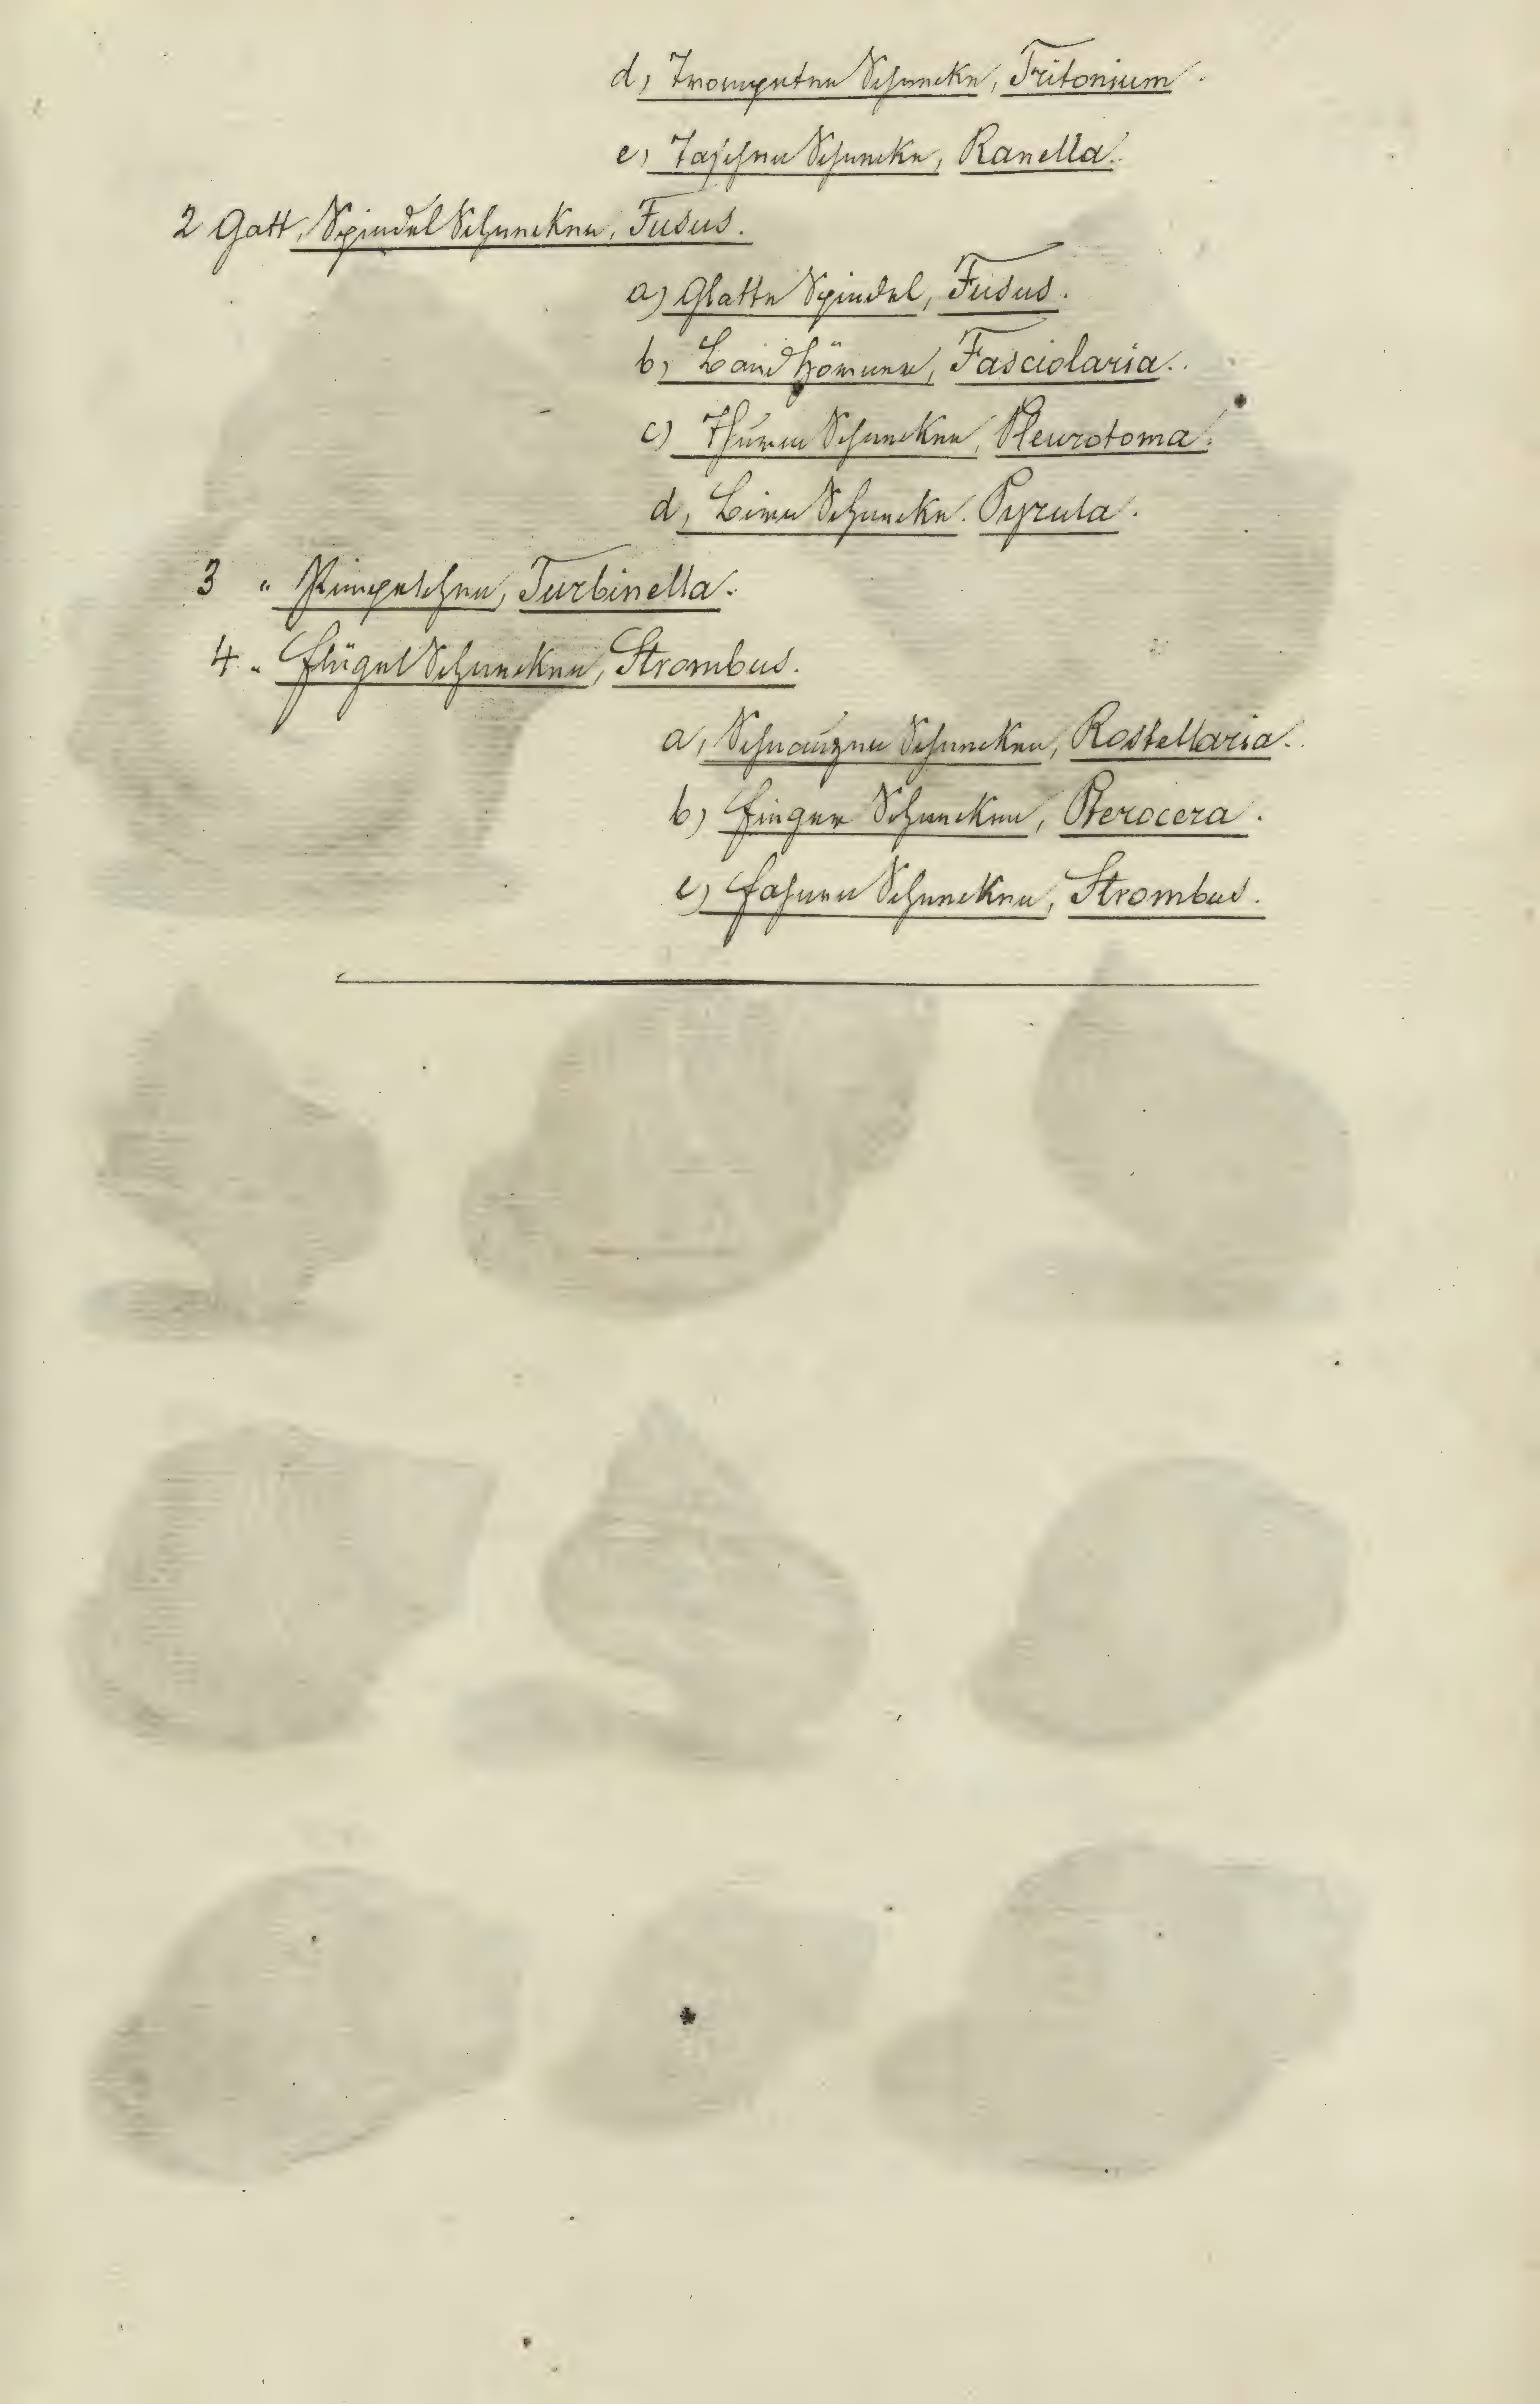 d) Trompeten Schnecke, Tritonium.
e) Taschen Schnecke, Ranella.
2 Gatt, Spindel Schnecken, Fusus.
a) Glatte Spindel, Fusus.
b) Band Fasciolaria.
c) Thurm Schnecken, Pleurotoma.
d, Birn Schnecke. Pyrula.
3 " Turbinella.
4 " Flügel Schnecken, Strombus.
a, Schnauzen Schnecken, Rostellaria.
b) Finger Schnecken, Pterocera.
c) Schnecken, Strombus.